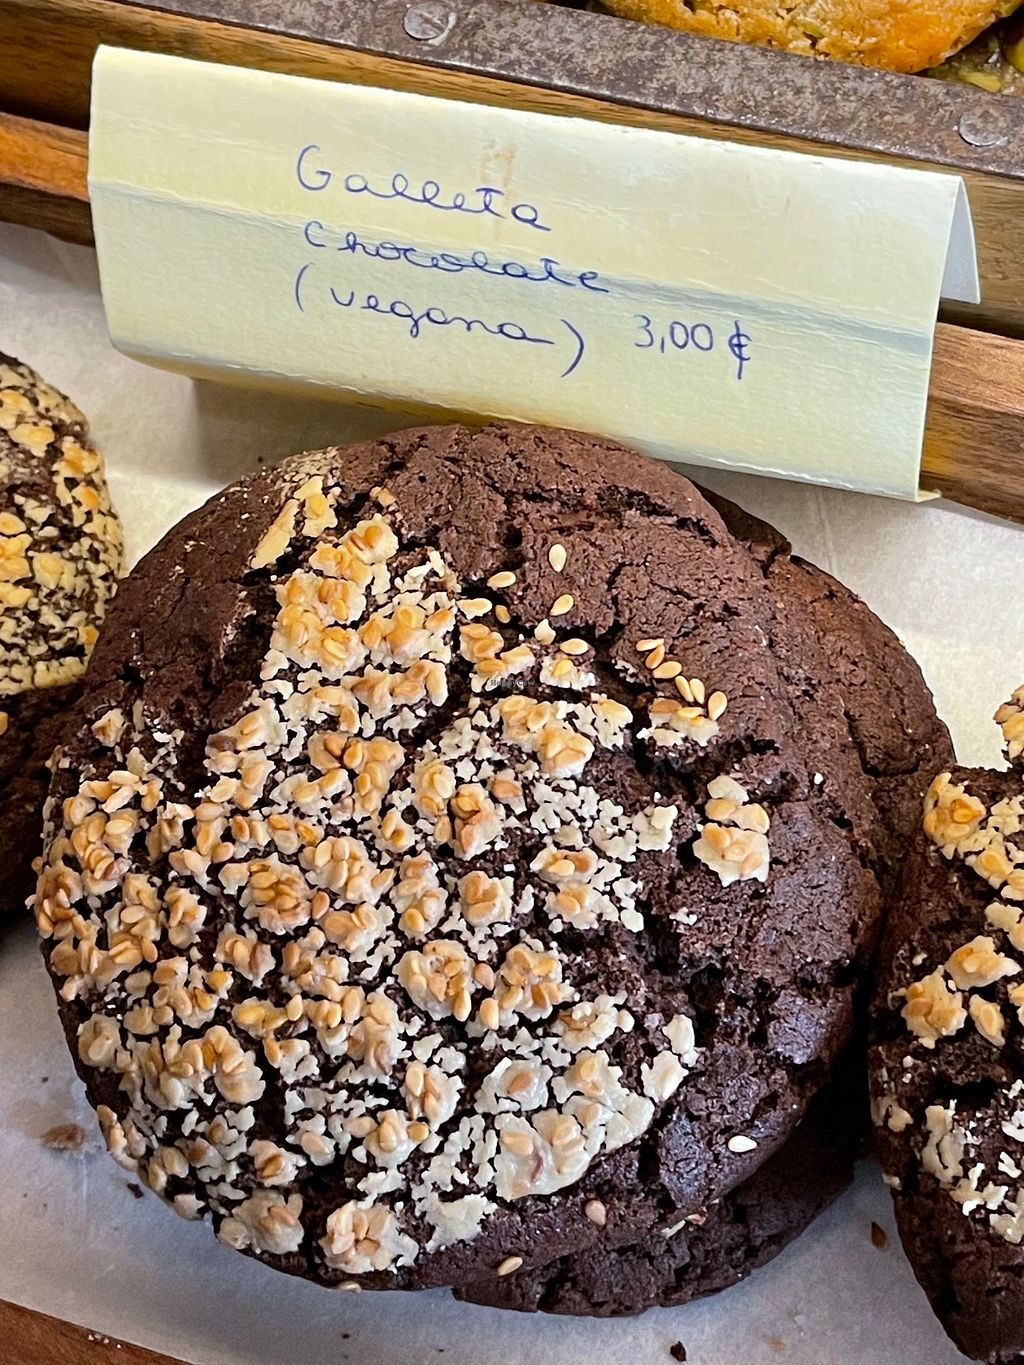 Galleta
chocolate
(vegana) 3,00 €
HappyCow